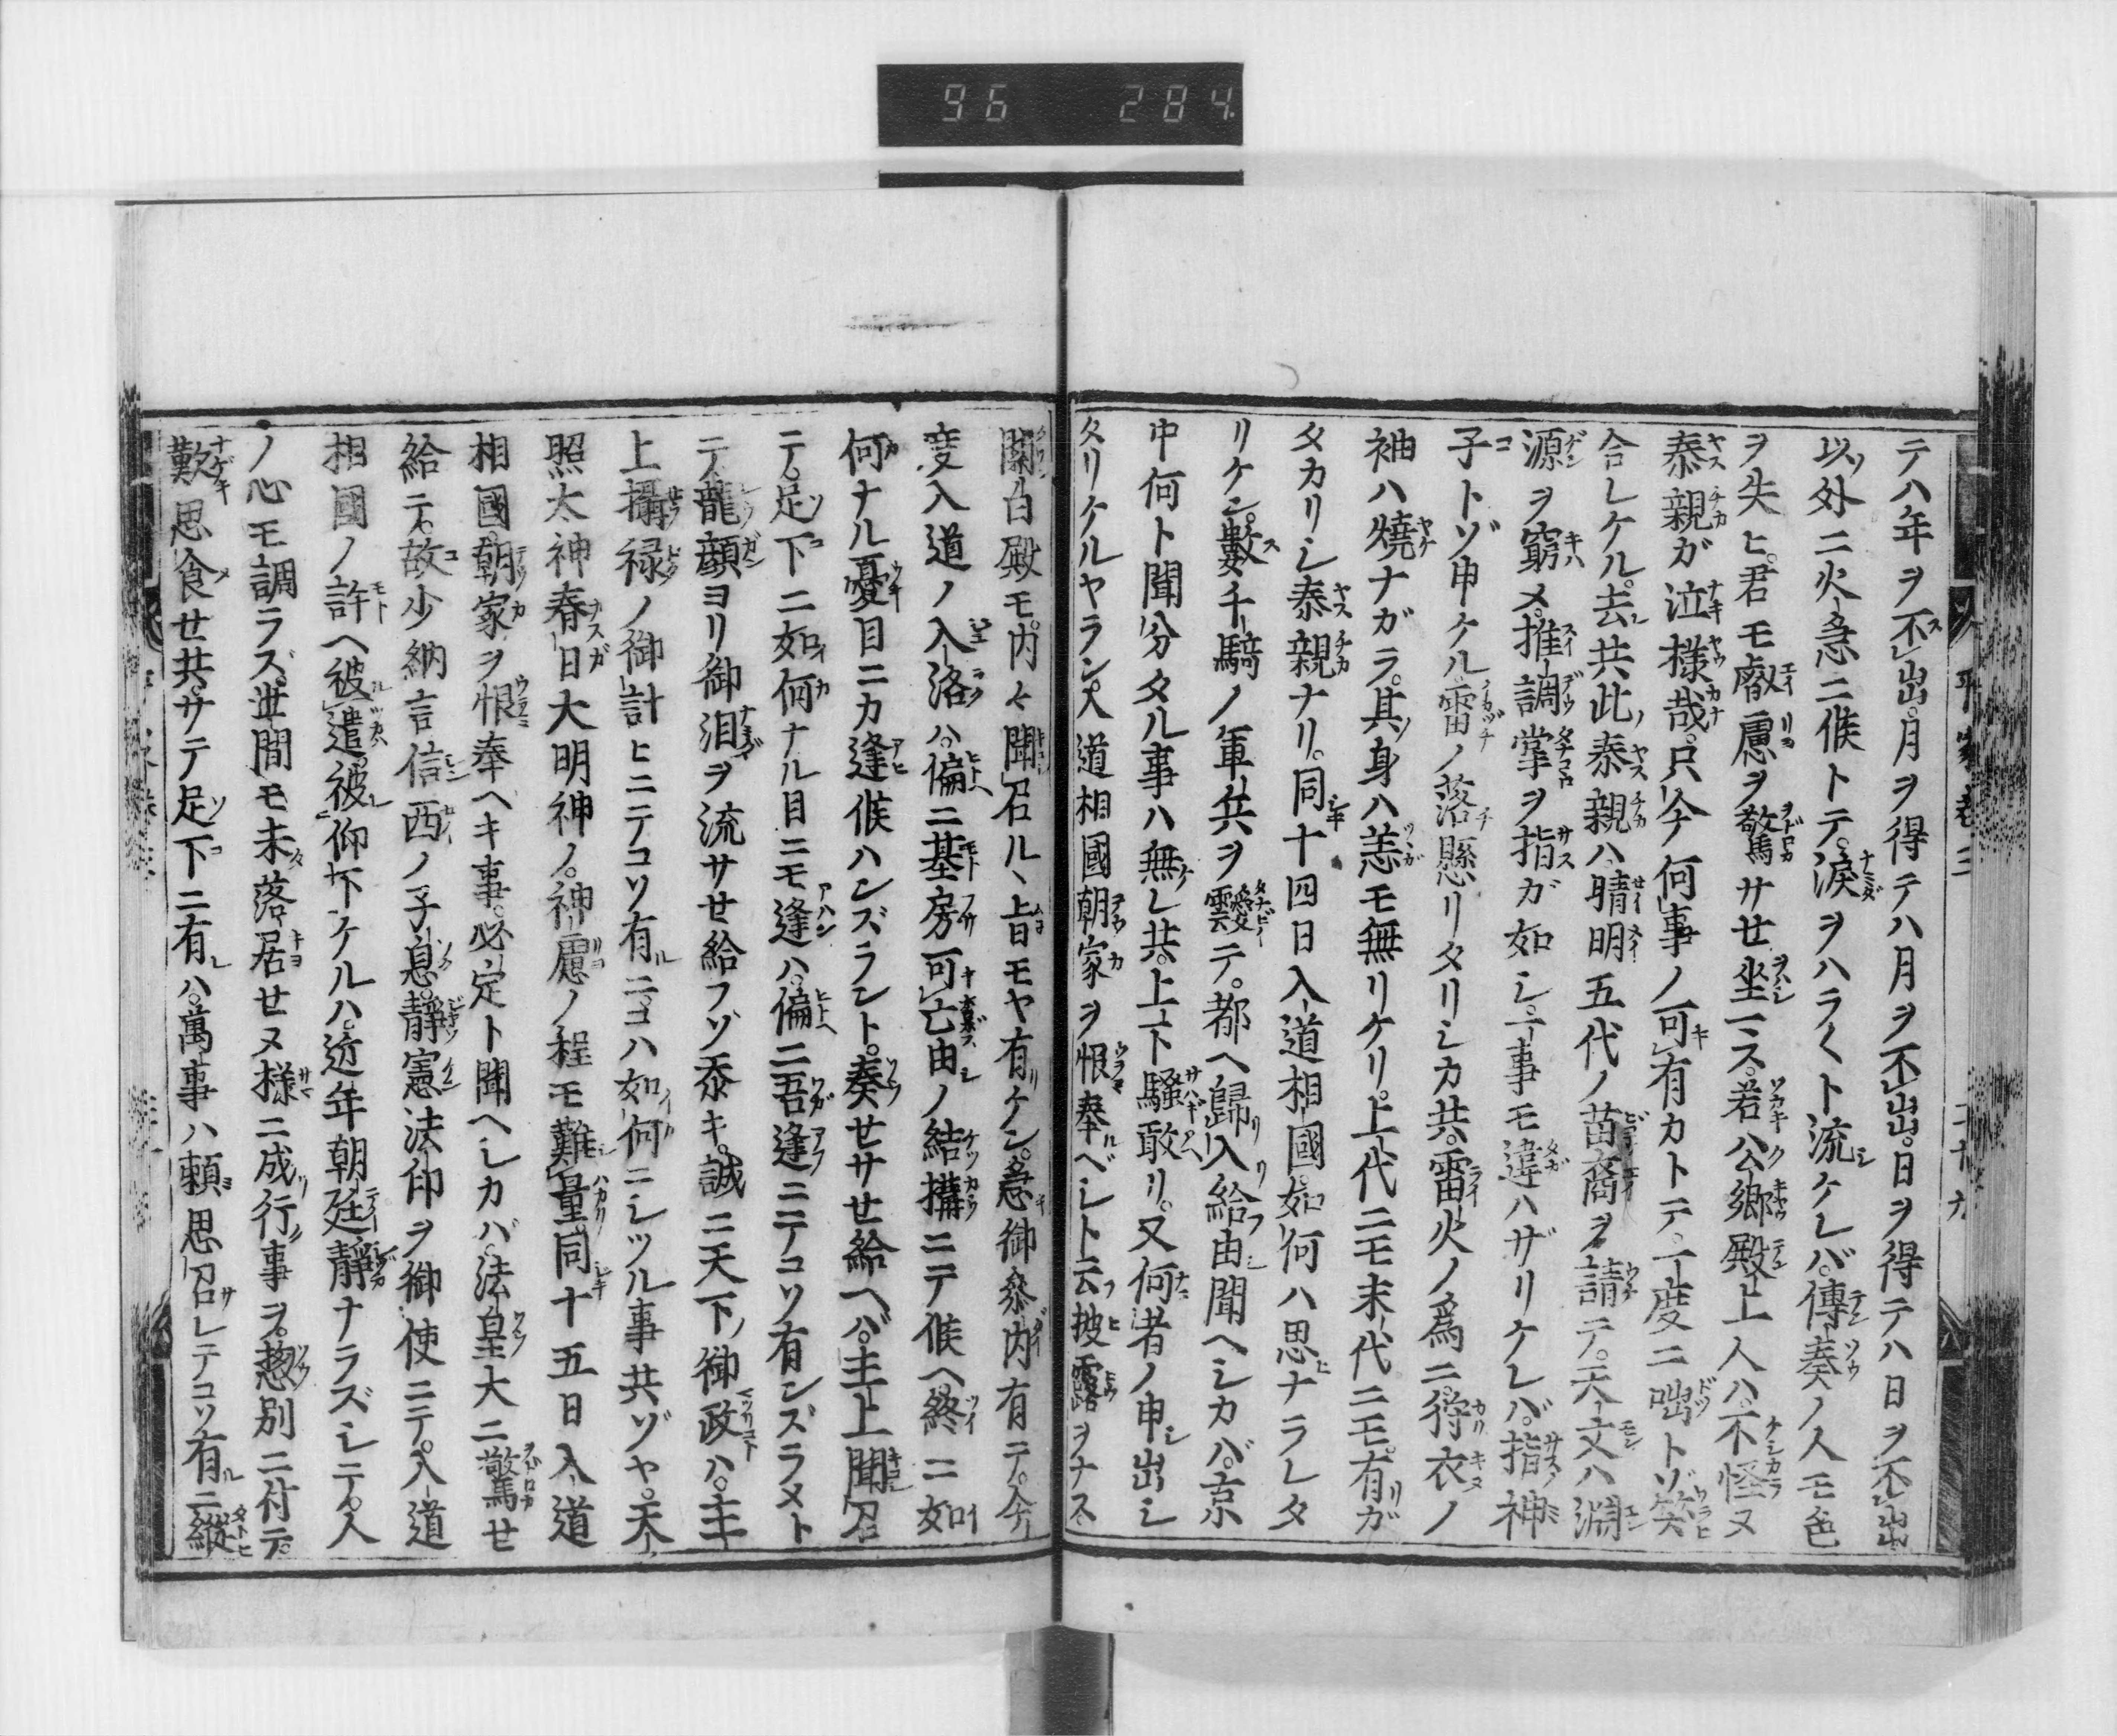 96 284
テハ年ヲ不出。月ヲ得テハ月ヲ不出。日ヲ得テハ日ヲ不出
以外ニ火急ニ候トテ。涙ヲハラ〱ト流ケレバ。傳奏ノ人モ色
ヲ失ヒ。君モ叡慮ヲ驚サセ坐ス。若公卿殿上人ハ。不怪ヌ
泰親ガ泣様哉。只今何事ノ可有カトテ。一度ニ咄トゾ笑
合レケル。去共此泰親ハ晴明五代ノ苗裔ヲ請テ。天文ハ淵
源ヲ窮メ。推調掌ヲ指ガ如シ。一事モ違ハザリケレバ。指神
子トゾ申ケル。雷ノ落懸リタリシカ共。雷火ノ爲ニ。狩衣ノ
袖ハ燒ナガラ。其身ハ恙モ無リケリ。上代ニモ末代ニモ。有ガ
タカリシ泰親ナリ。同十四日入道相國。如何ハ思ナラレタ
リケン。數千騎ノ軍兵ヲ靉テ。都ヘ歸入給由聞ヘシカバ。京
中何ト聞分タル事ハ無レ共。上下騷敢リ。又何者ノ申出シ
タリケルヤラン。入道相國朝家ヲ恨奉ベシト云披露ヲナス
關白殿モ。内々聞召ル丶旨モヤ有ケン。急御參内有テ。今
度入道ノ入洛ハ。偏ニ基房可亡由ノ結構ニテ候ヘ。終ニ如
何ナル憂目ニカ逢候ハンズラント。奏セサせ給ヘバ。主上聞召
テ。足下ニ如何ナル目ニモ逢ハ。偏ニ吾逢ニテコソ有ンズラメト
テ。龍顔ヨリ御泪ヲ流サせ給フゾ忝キ。誠ニ天下ノ御政ハ。主
上攝禄ノ御計ヒニテコソ有ニ。コハ如何ニシツル事共ゾヤ。天
照太神春日大明神ノ。神慮ノ程モ難量。同十五日入道
相國。朝家ヲ恨奉ヘキ事。必定ト聞ヘシカバ。法皇大ニ驚せ
給テ。故少納言信西ノ子息。靜憲法印ヲ御使ニテ。入道
相國ノ許ヘ被遣。被仰下ケルハ。近年朝廷靜ナラズシテ。人
ノ心モ調ラズ。世間モ未落居せヌ様ニ成行事ヲ。惣別ニ付テ。
歎思食せ共。サテ足下ニ有レハ。萬事ハ頼思召レテコソ有ニ。縦